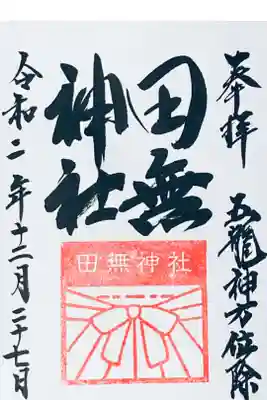 奉拝 五龍神方位除
田無
神社
田無神社
令和二年十二月二十七日